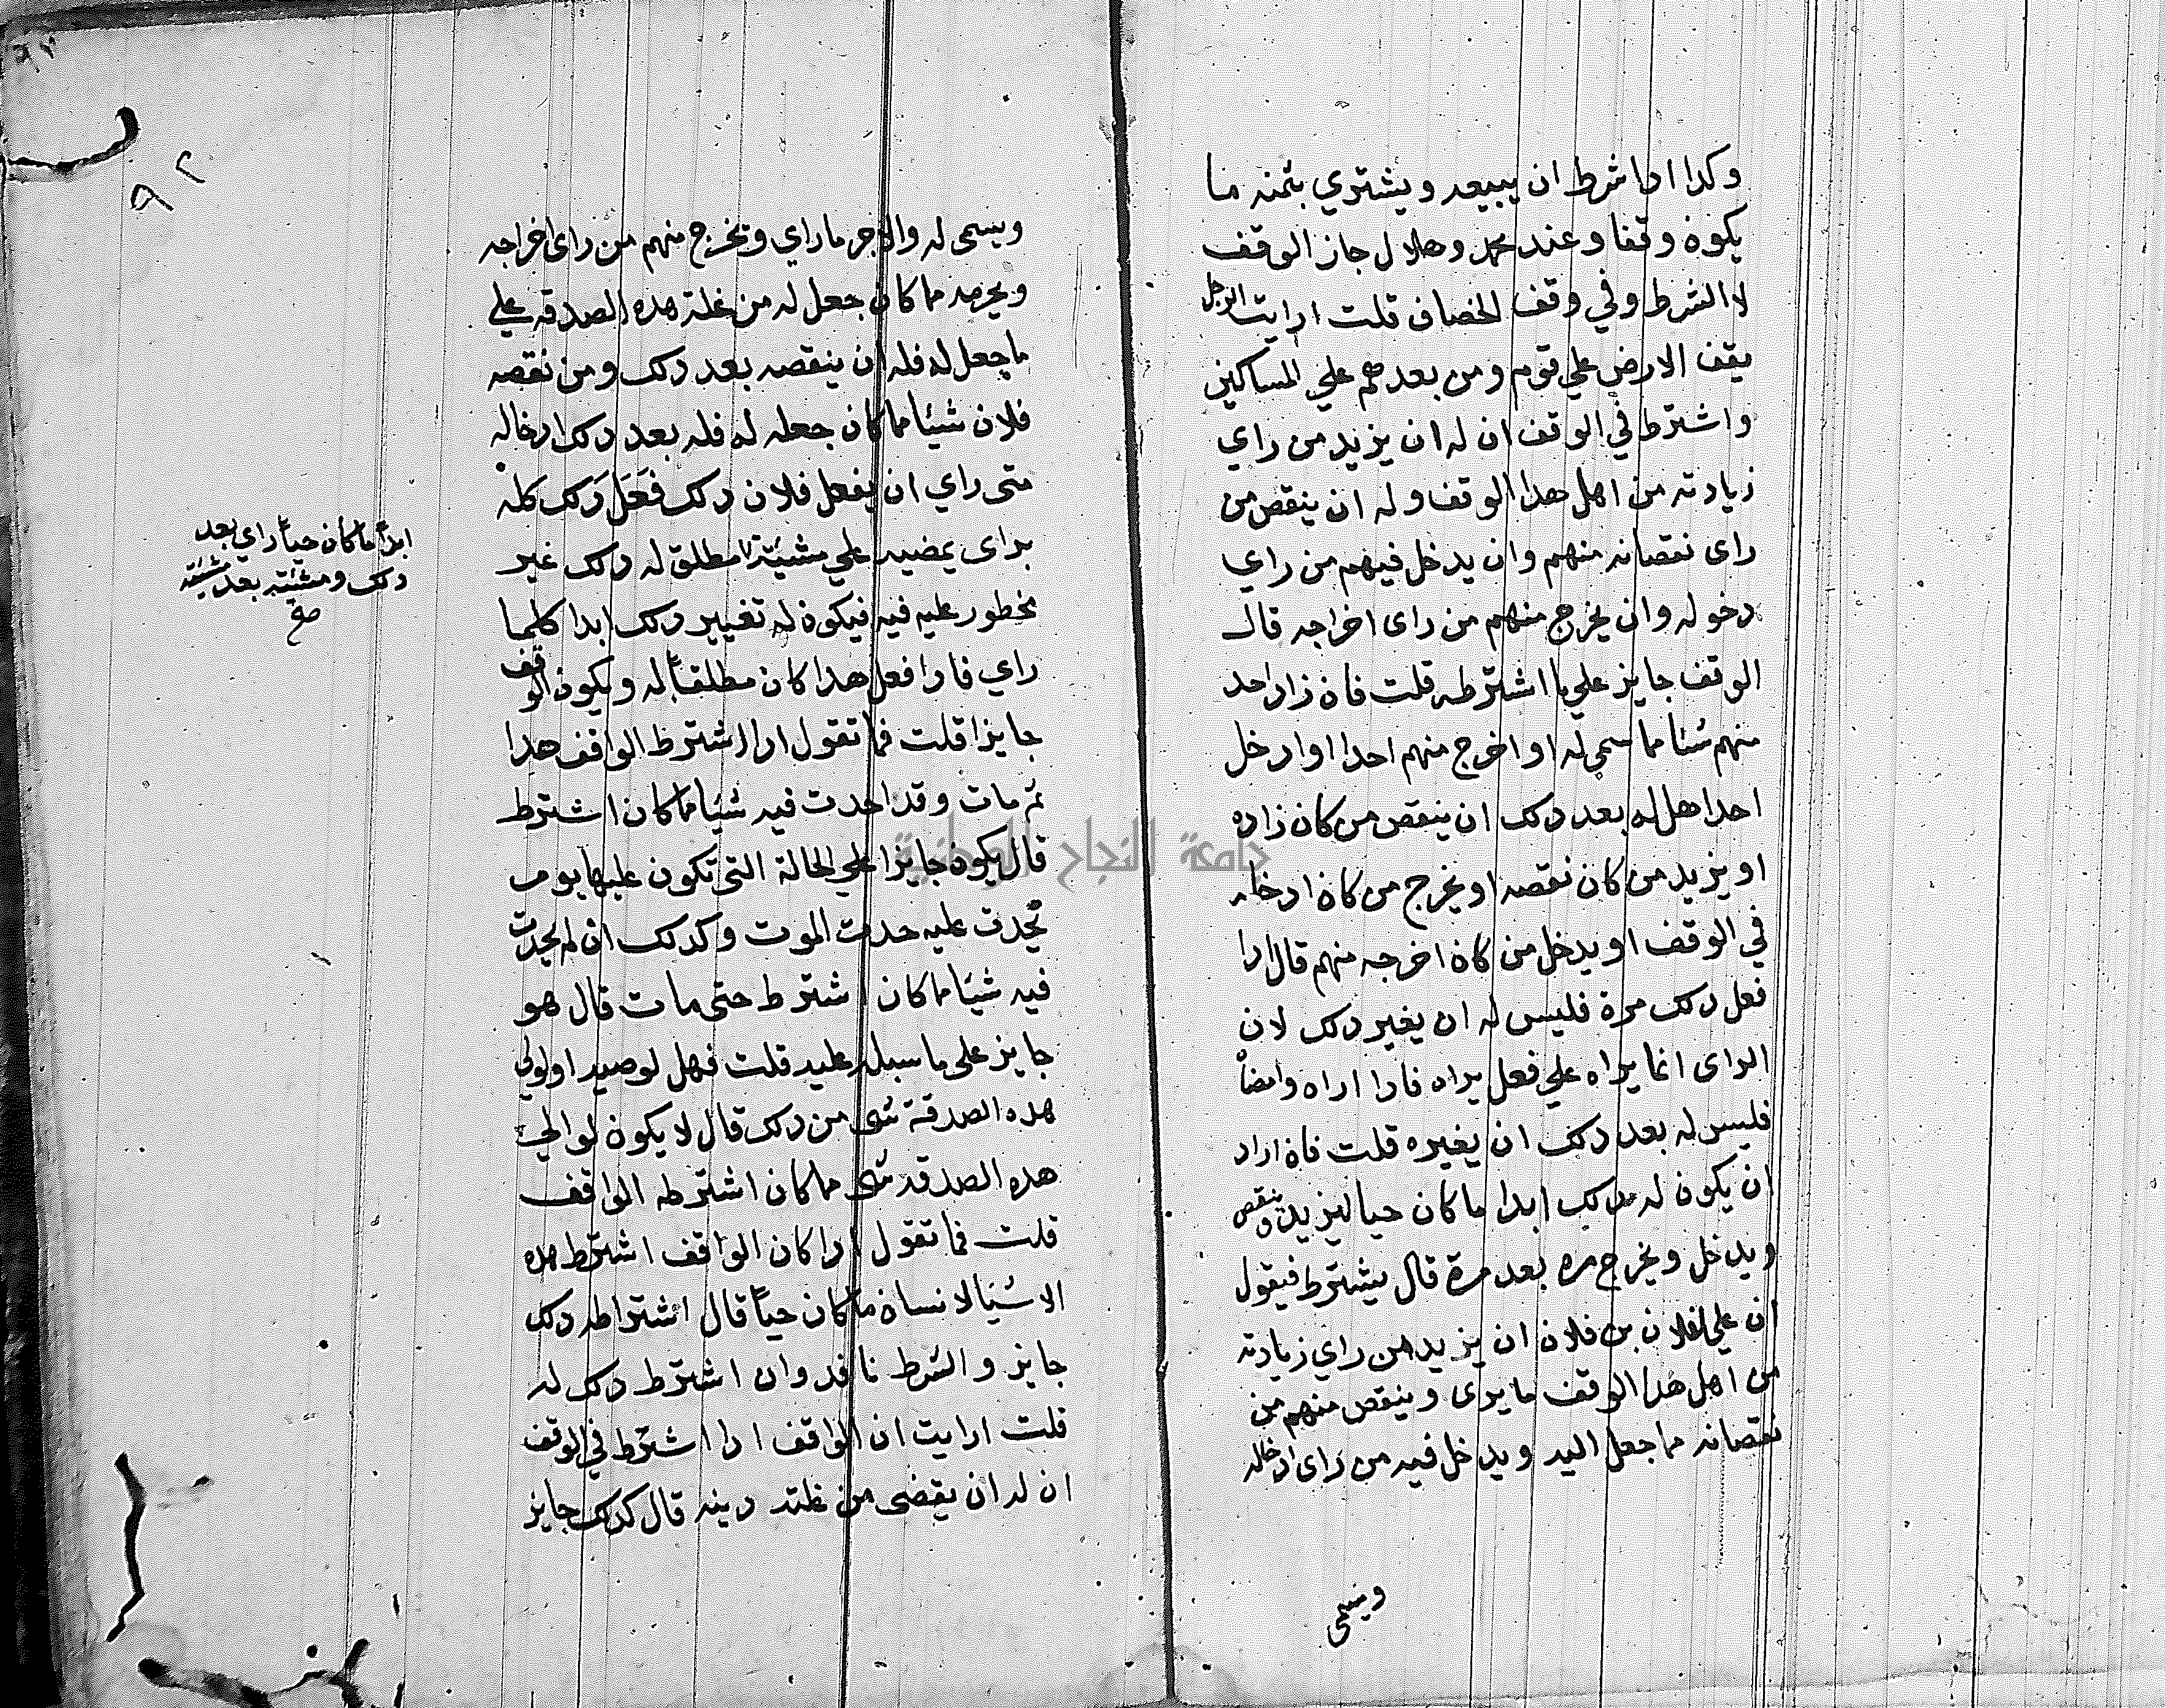 وكدا ادا شرط ان يبيعه ويشتري بثمنه ما
يكون وقفا وعند محمد وهلال جاز الوقف
لا الشرط وفي وقف الخصاف قلت ارايت الرجل
يقف الارض علي قوم ومن بعدهم علي المساكين
واشترط في الوقف ان له ان يزيد من راي
زيادته من اهل هدا الوقف وله ان ينقص من
راى نقصانه منهم وان يدخل فيهم من راي
دخوله وان يخرج منهم من راى اخراجه قال
الوقف جايز علي ما اشترطه قلت فان زاد احد
منهم شئا مما سمي له او اخرج منهم احدا او ادخل
احدا هل له بعد دلك ان ينقص من كان زاده
او يزيد من كان نقصه او يخرج من كان ادخله
في الوقف او يدخل من كان اخرجه منهم قال ادا
فعل دلك مرة فليس له ان يغير دلك لان
الراى انما يراه علي فعل يراه فادا اراه وامضاه
فليس له بعد دلك ان يغيره قلت فان اراد
ان يكون له دلك ابدا ما كان حيا ليزيد وينقص
ويدخل ويخرج مره بعد مرة قال يشترط فيقول
ان علي لفلان بن فلان ان يزيد من راي زيادته
من اهل هدا الوقف ما يرى وينقص منهم من
نقصانه مما جعل اليه ويدخل فيه من راى ادخاله
ويسمى
٩٢
ويسمى له والاجر ما راي ويخرج منهم من راى اخراجه
ويحرمه مما كان جعل له من غلة هده الصدقه علي
ما جعل له فله ان ينقصه بعد دلك ومن نقصه
فلان شيئا مما كان جعله له فله بعد دلك ادخاله
متى راي ان يفعل فلان دلك فعل دلك كله
براى يمضيه علي مشيئة مطلق له دلك غير
محظور عليه فيه فيكون له تغيير دلك ابدا كلما
راي فادا فعل هدا كان مطلقا له ويكون الوقف
جايزا قلت فما تقول ادا اشترط الواقف هدا
ثم مات وقد احدت فيه شيئا مما كان اشترط
قال يكون جايزا علي الحالة التي تكون عليها يوم
يحدث عليه حدت الموت وكدلك ان لم يحدث
فيه شيئا مما كان اشترط حتى مات قال هو
جايز على ما سبله عليه قلت فهل لوصيه او لولي
هده الصدقة شى من دلك قال لا يكون لوالي
هده الصدقه شى مما كان اشترطه الواقف
قلت فما تقول ادا كان الواقف اشترط هده
الاشيا لانسان ما كان حيا قال اشتراطه دلك
جايز والشرط نافد وان اشترط دلك له
قلت ارايت ان الواقف ادا اشترط في الوقف
ان له ان يقضى من غلته دينه قال كدلك جايز
ابدا ما كان حيا راي بعد
دلك ومشئته بعد مشيئته
صح
جامعة النجاح الوطنية